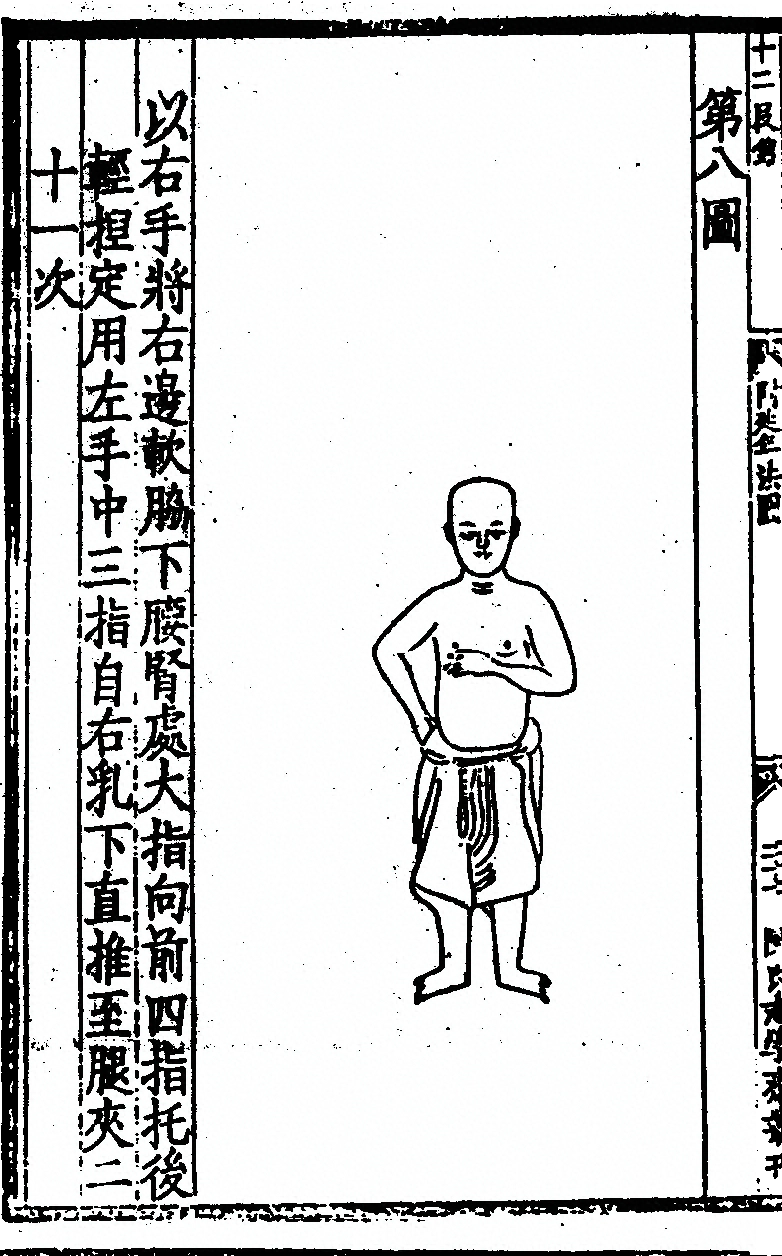 十二段錦
第八圖
以右手將右邊軟脇下腰腎處大指向前四指托後
輕揑定用左手中三指自右乳下直推至腿夾二
十一次